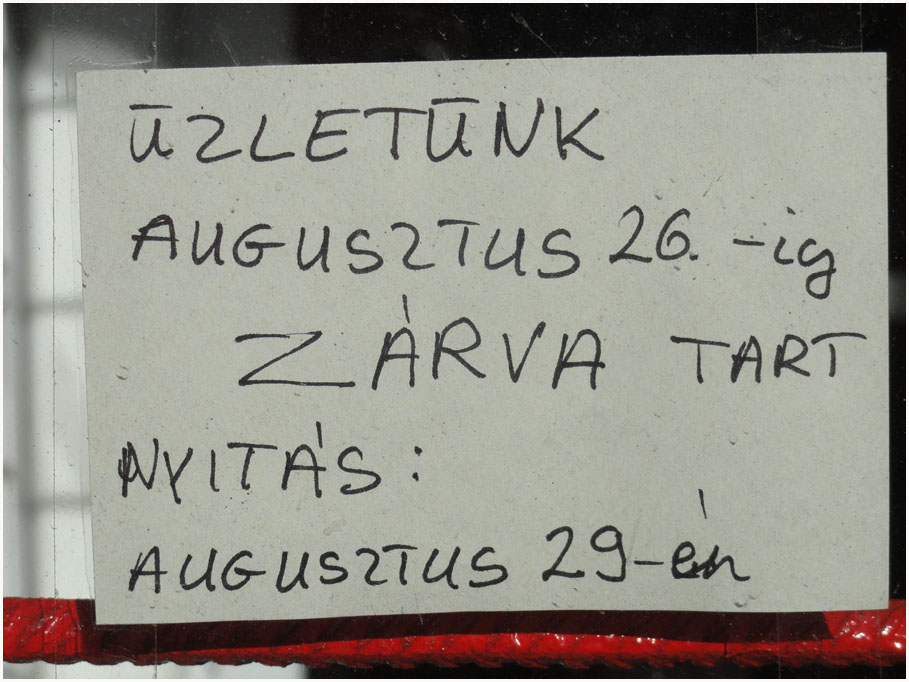 ÜZLETÜNK
AUGUSZTUS 26. -ig
ZÁRVA TART
NYITÁS:
AUGUSZTUS 29-én